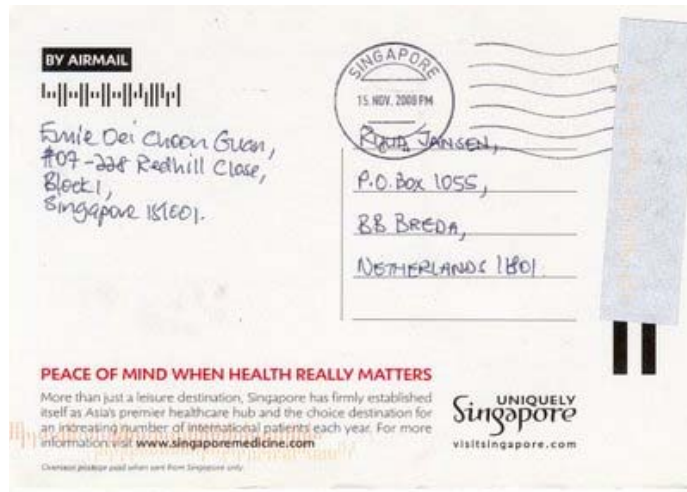 BY AIRMAIL
SINGAPORE
15. NOV. 2008 PM
Choon Guan,
#07-228 Redhill Close,
Block 1,
Singapore 151001.
RUUD JANSEN,
P.O. Box 1055,
BB BREDA,
NETHERLANDS
PEACE OF MIND WHEN HEALTH REALLY MATTERS
More than just a leisure destination, Singapore has firmly established
itself as Asia's premier healthcare hub and the choice destination for
an increasing number of international patients each year. For more
information visit www.singaporemedicine.com
Overseas postage paid when sent from Singapore only.
UNIQUELY
Singapore
visitsingapore.com